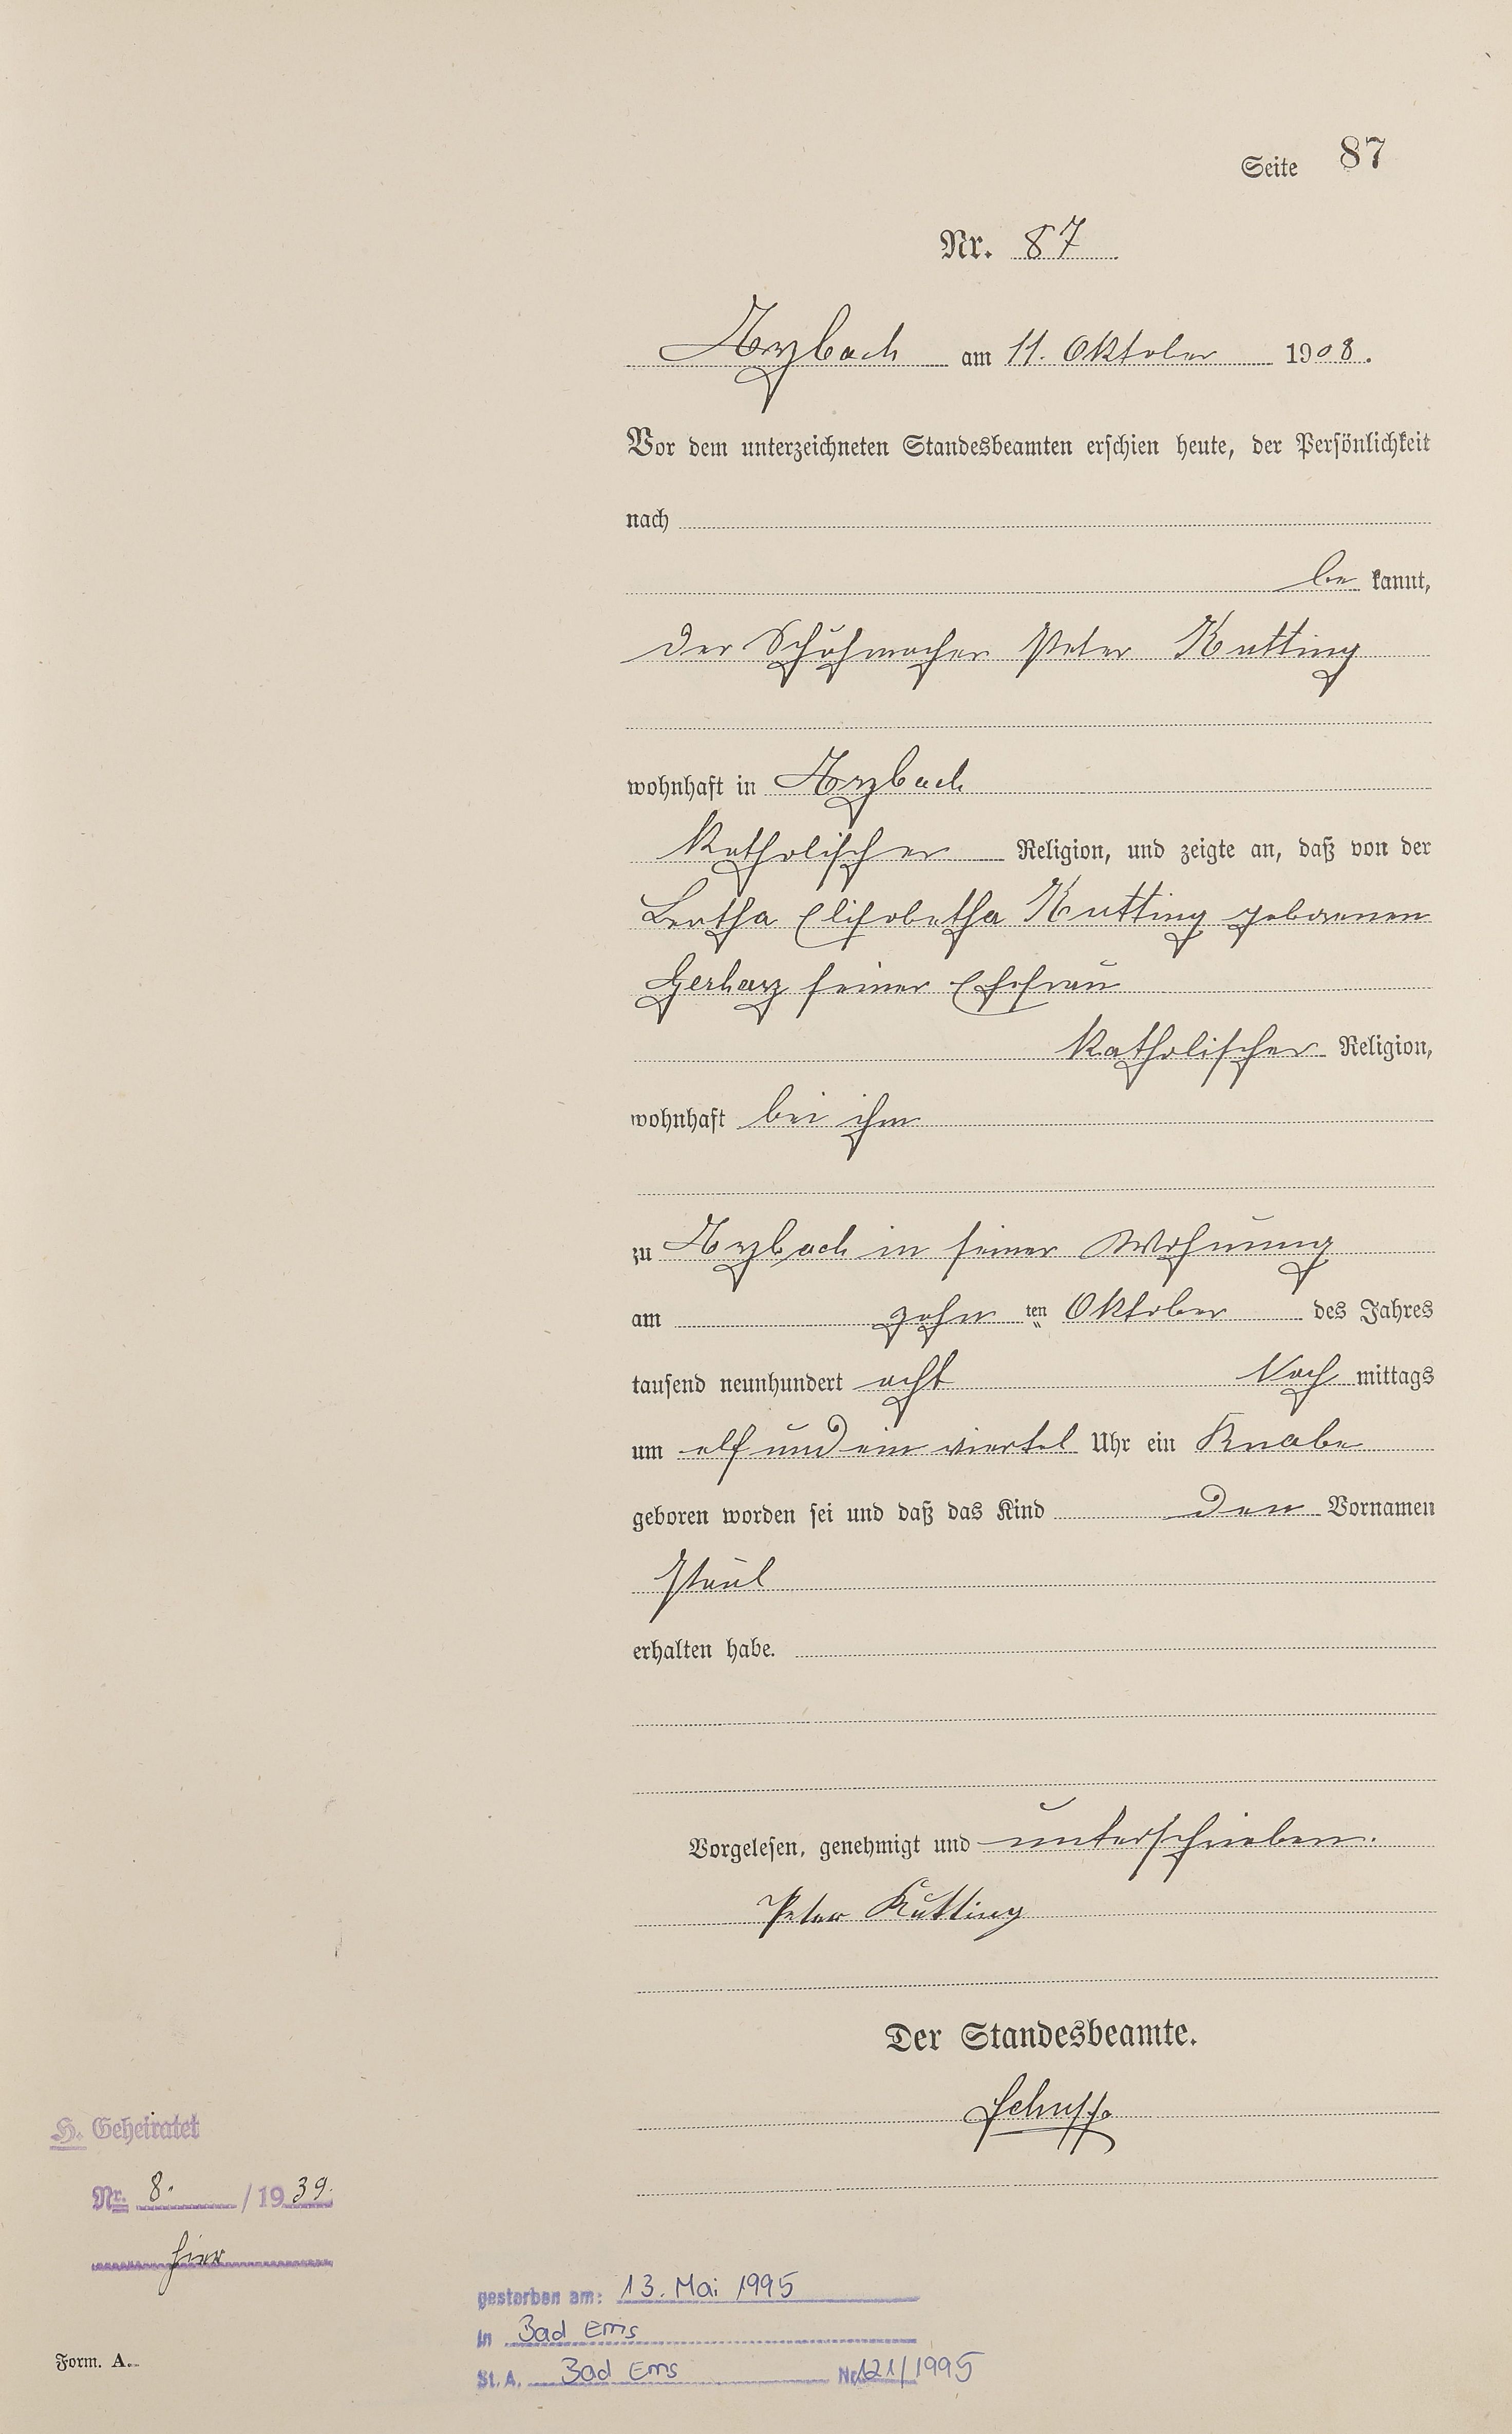 Seite 87
Nr. 87
Arzbach am 11. Oktober 1908.
Vor dem unterzeichneten Standesbeamten erschien heute, der Persönlichkeit
nach
be kannt,
der Schuhmacher Peter Kutting
wohnhaft in Arzbach
katholischer Religion, und zeigte an, daß von der
Bertha Elisabetha Kutting geborenen
Gerharz seiner Ehefrau
katholischer Religion,
wohnhaft bei ihm
zu Arzbach in seiner Wohnung
am zehn ten Oktober des Jahres
tausend neunhundert acht Nach mittags
um elf und ein viertel Uhr ein Knabe
geboren worden sei und daß das Kind den Vornamen
Paul
erhalten habe.
Vorgelesen, genehmigt und unterschrieben.
Peter Kutting
Der Standesbeamte.
H. Geheiratet
Nr. 8. / 1939.
hier
gestorben am: 13. Mai 1995
in Bad Ems
St. A. Bad Ems Nr. 121/1995
Form. A.